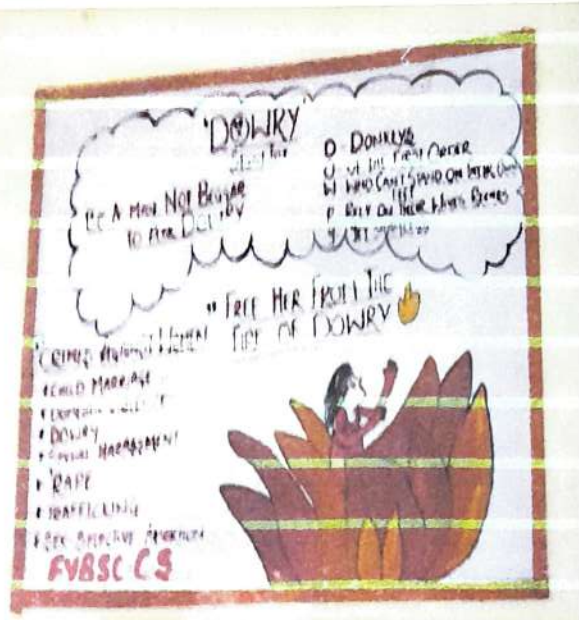 'DOWRY'
BE A MAN NOT BEGGAR
TO ASK DOWRY
D DONKEYS
O OF THE FIRST ORDER
W WHO CAN'T STAND ON THEIR OWN
FEET
R RELY ON THEIR WIFE'S
Y
" FREE HER FROM THE
FIRE OF DOWRY
CRIMES AGAINST WOMEN
CHILD MARRIAGE
DOMESTIC VIOLENCE
DOWRY
SEXUAL HARRASSMENT
RAPE
TRAFFICKING
SEX SELECTIVE ABORTION
FYBSC CS